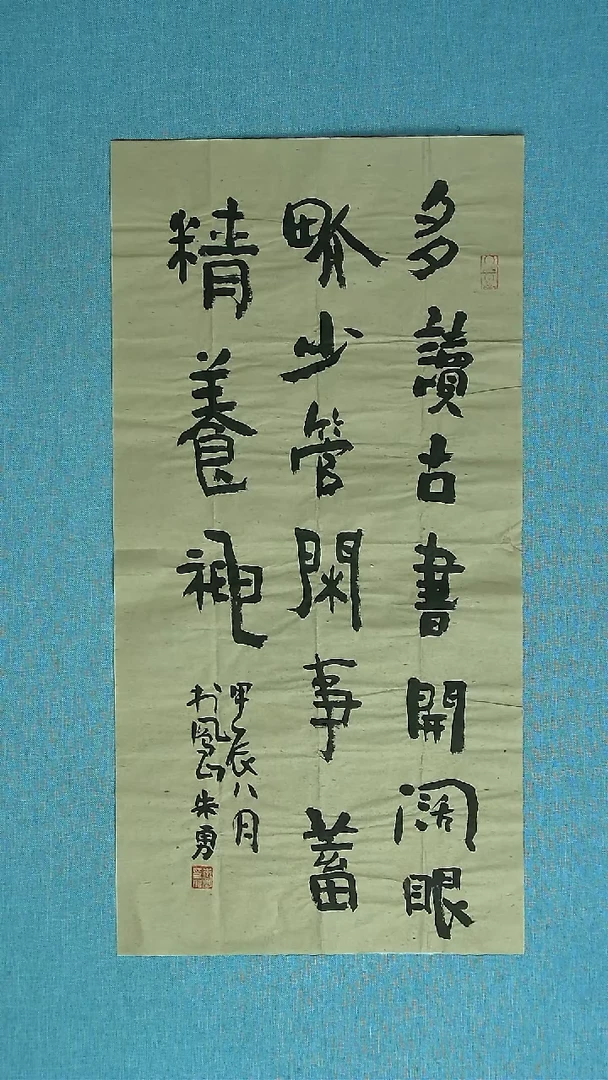 多讀古書開阔眼
畍少管閑事蓄
精養神
甲辰八月
於鳳山朱勇